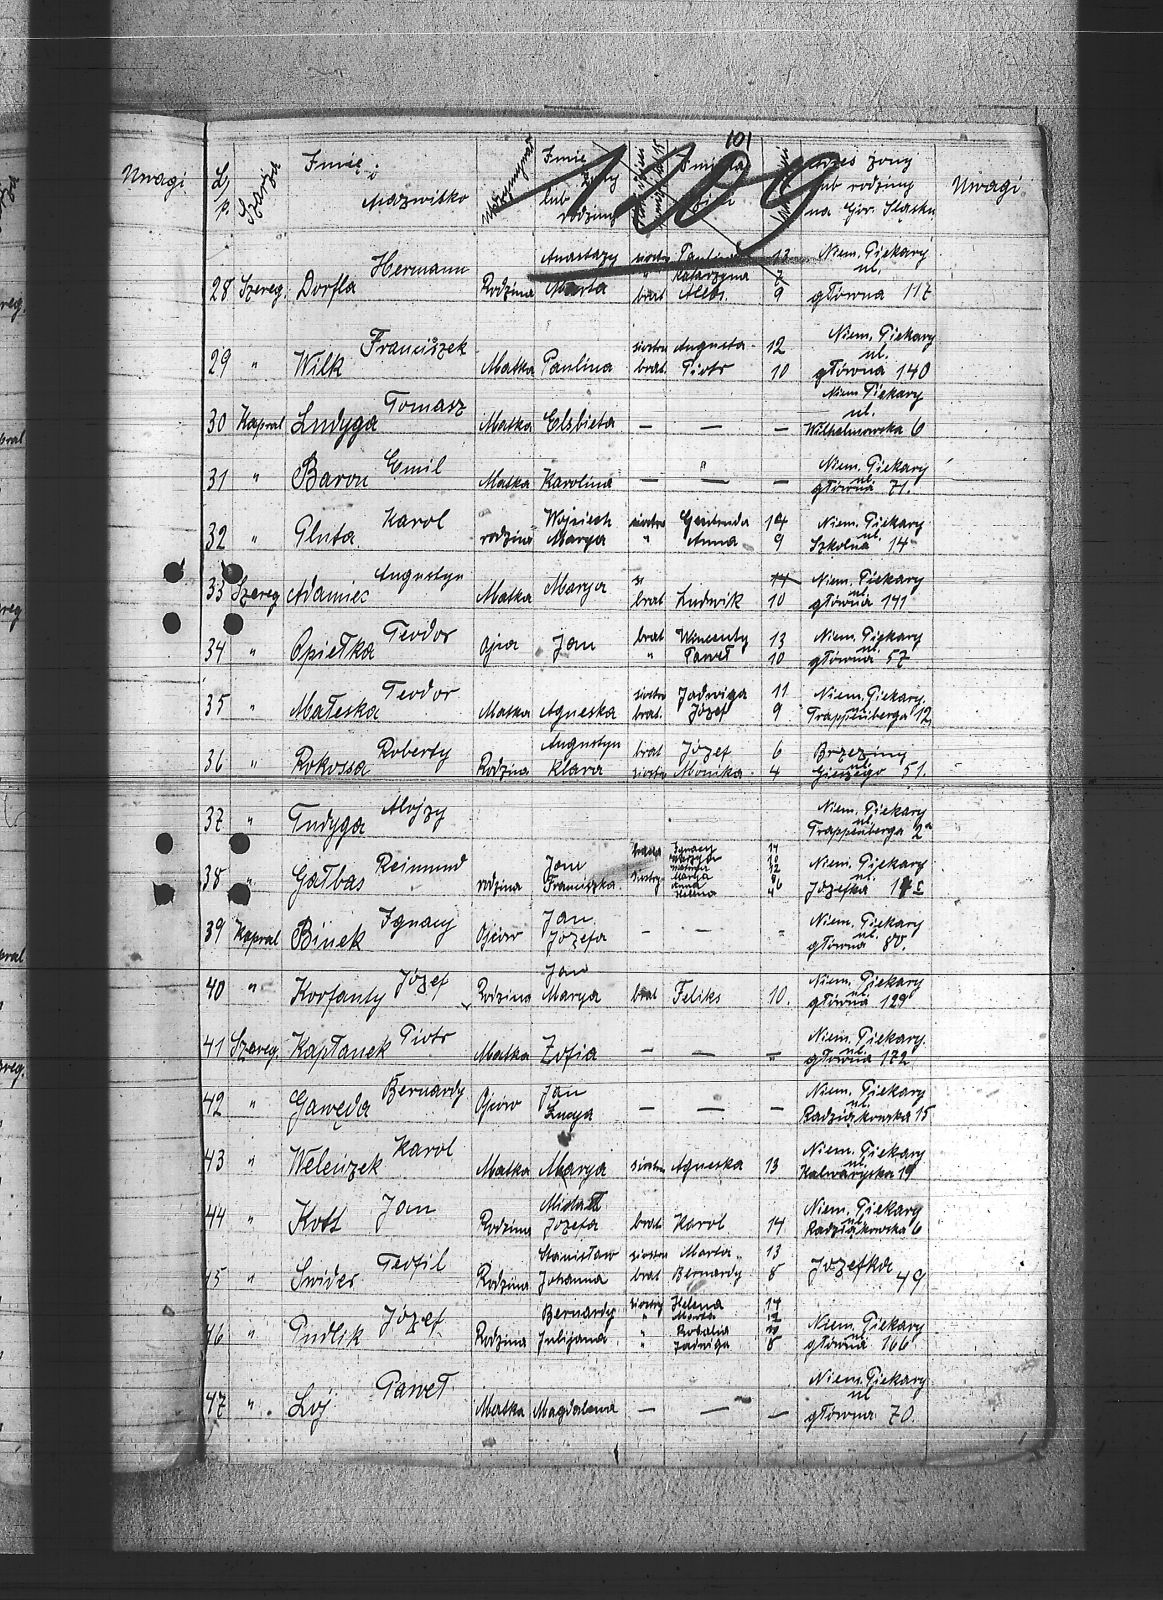 101
1209
Uwagi
L.p. Szarża Imię i Nazwisko Imię żony lub rodziny Imiona adres żony lub rodziny na Gór. Śląsku Uwagi
28 Szereg. Dorfla Hermann Rodzina Anastazy Marta siostra Paulina 13 " Katarzyna 7 brat Aleks. 9 Niem. Piekary ul. główna 117
29 " Wilk Franciszek Matka Paulina siostra Augusta 12 brat Piotr 10 Niem. Piekary ul. główna 140
30 Kapral Ludyga Tomasz Matka Elsbieta — — — Niem. Piekary ul. Wilhelmowska 6
31 " Baron Emil Matka Karolina — — — Niem. Piekary ul. główna 71.
32 " Pluta Karol rodzina Wojciech Marya siostra Gertruda 14 " Anna 9 Niem. Piekary ul. Szkolna 14
33 Szereg Adamiec Augustyn Matka Marya brat Ludwik 10 Niem. Piekary ul. główna 141
34 " Opiełka Teodor Ojciec Jan brat Wincenty 13 " Paweł 10 Niem. Piekary ul. główna 57
35 " Małeska Teodor Matka Agneska siostra Jadwiga 11 brat Józef 9 Niem. Piekary Trappenberga 12
36 " Rokossa Roberty Rodzina Augustyn Klara brat Józef 6 siostra Monika 4 Brzeziny ul. 51.
37 " Tudyga Alojzy Niem. Piekary ul. Trappenberga 2a
38 " Gałbas Reimund rodzina Jan Franciszka siostry Marya Anna Helena Niem. Piekary ul. Józefka
39 Kapral Binek Ignacy Ojców Jan Józefa - - - Niem. Piekary ul. główna 80.
40 " Korfanty Józef Rodzina Jan Marya brat Feliks 10. Niem. Piekary ul. główna 129
41 Szereg. Kapłanek Piotr Matka Zofia — — — Niem. Piekary. ul. główna 172
42 " Gawęda Bernardy Ojców Jan Lucya — — — Niem. Piekary ul. Radziąkowska 15
43 " Weleńzek Karol Matka Marya siostra Agneska 13 Niem. Piekary ul. Kalwaryska 19
44 " Kott Jan Rodzina Michał Józefa brat Karol 14 Niem. Piekary ul. Radziąkowska 6
45 " Swider Teofil Rodzina Stanisław Johanna siostra Marta 13 brat Bernardy 8 Jozefka 49
46 " Pudlik Józef Rodzina Bernardy Julijana siostry Helena 14 " Marta 12 " Rozalia 10 " Jadwiga 8 Niem. Piekary ul. główna 166
47 " Lój Paweł Matka Magdalena — — — Niem. Piekary ul. główna 70.